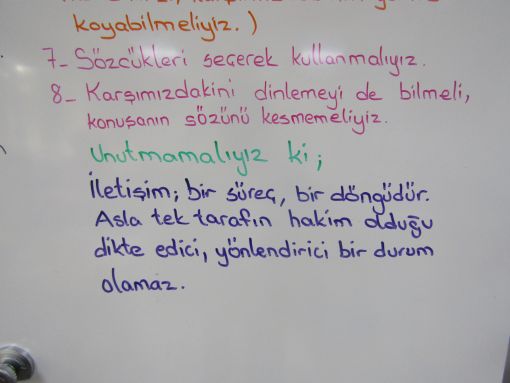 koyabilmeliyiz.)
7- Sözcükleri seçerek kullanmalıyız.
8- Karşımızdakini dinlemeyi de bilmeli,
konuşanın sözünü kesmemeliyiz.
Unutmamalıyız ki;
İletişim; bir süreç, bir döngüdür.
Asla tek tarafın hakim olduğu
dikte edici, yönlendirici bir durum
olamaz.